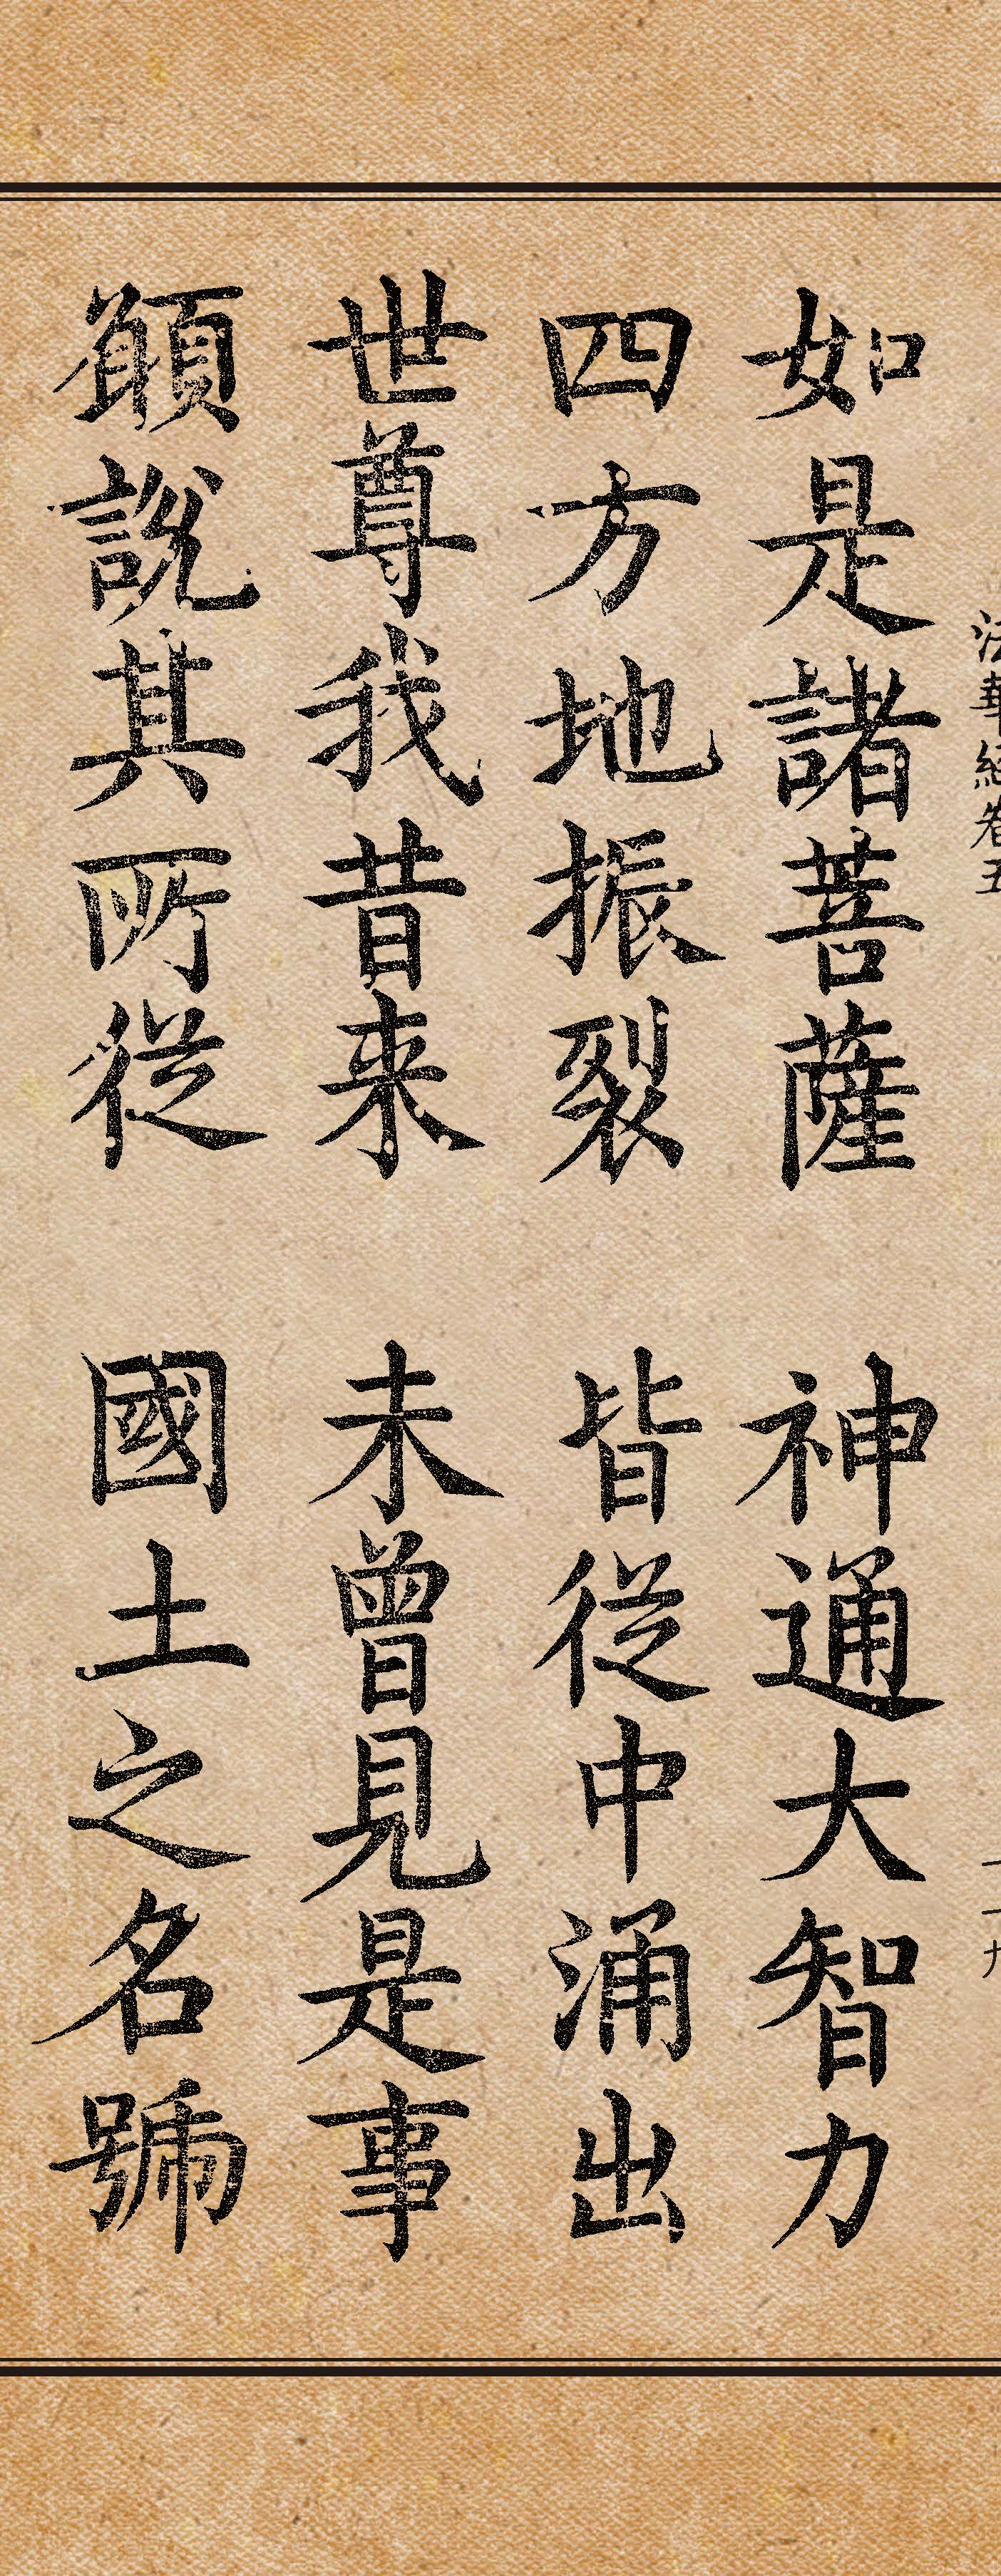 法華經卷五
如是諸菩薩 神通大智力
四方地振裂 皆從中涌出
世尊我昔来 未曾見是事
願說其所從 國土之名號